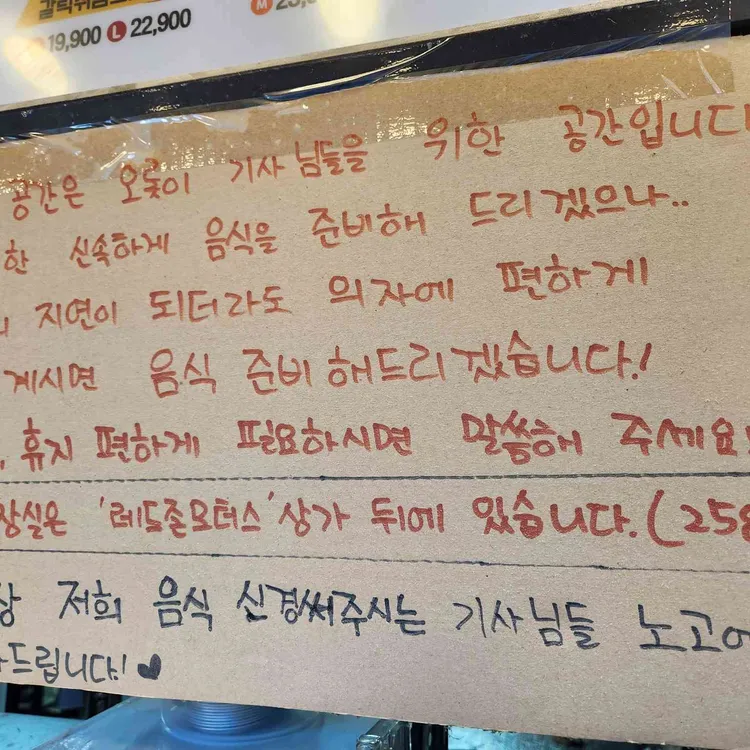 19,900 L 22,900 M
공간은 오롯이 기사님들을 위한 공간입니다
한 신속하게 음식을 준비해 드리겠으나..
지연이 되더라도 의자에 편하게
계시면 음식 준비해드리겠습니다!
휴지 편하게 필요하시면 말씀해 주세요!
장실은 '레드존모터스' 상가 뒤에 있습니다. (258
상 저희 음식 신경써주시는 기사님들 노고에
드립니다! ♥